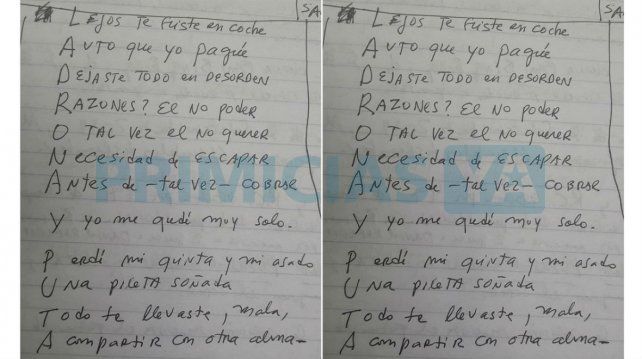 SA
LEJOS TE fuiste en coche
AUTO que yo pagué
DEJASTE TODO en DESORDEN
RAZONES? El NO poder
O TAL VEZ el NO querer
Necesidad de ESCAPAR
Antes de -tal vez- COBRAR
Y yo me quedé muy solo.
Perdí mi quinta y mi asado
UNA PILETA SOÑADA
Todo te llevaste, mala,
A compartir con otra alma-
PRIMICIAS YA
SA
LEJOS TE fuiste en coche
AUTO que yo pagué
DEJASTE TODO en DESORDEN
RAZONES? El NO poder
O TAL VEZ el NO querer
Necesidad de ESCAPAR
Antes de -tal vez- COBRAR
Y yo me quedé muy solo.
Perdí mi quinta y mi asado
UNA PILETA SOÑADA
Todo te llevaste, mala,
A compartir con otra alma-